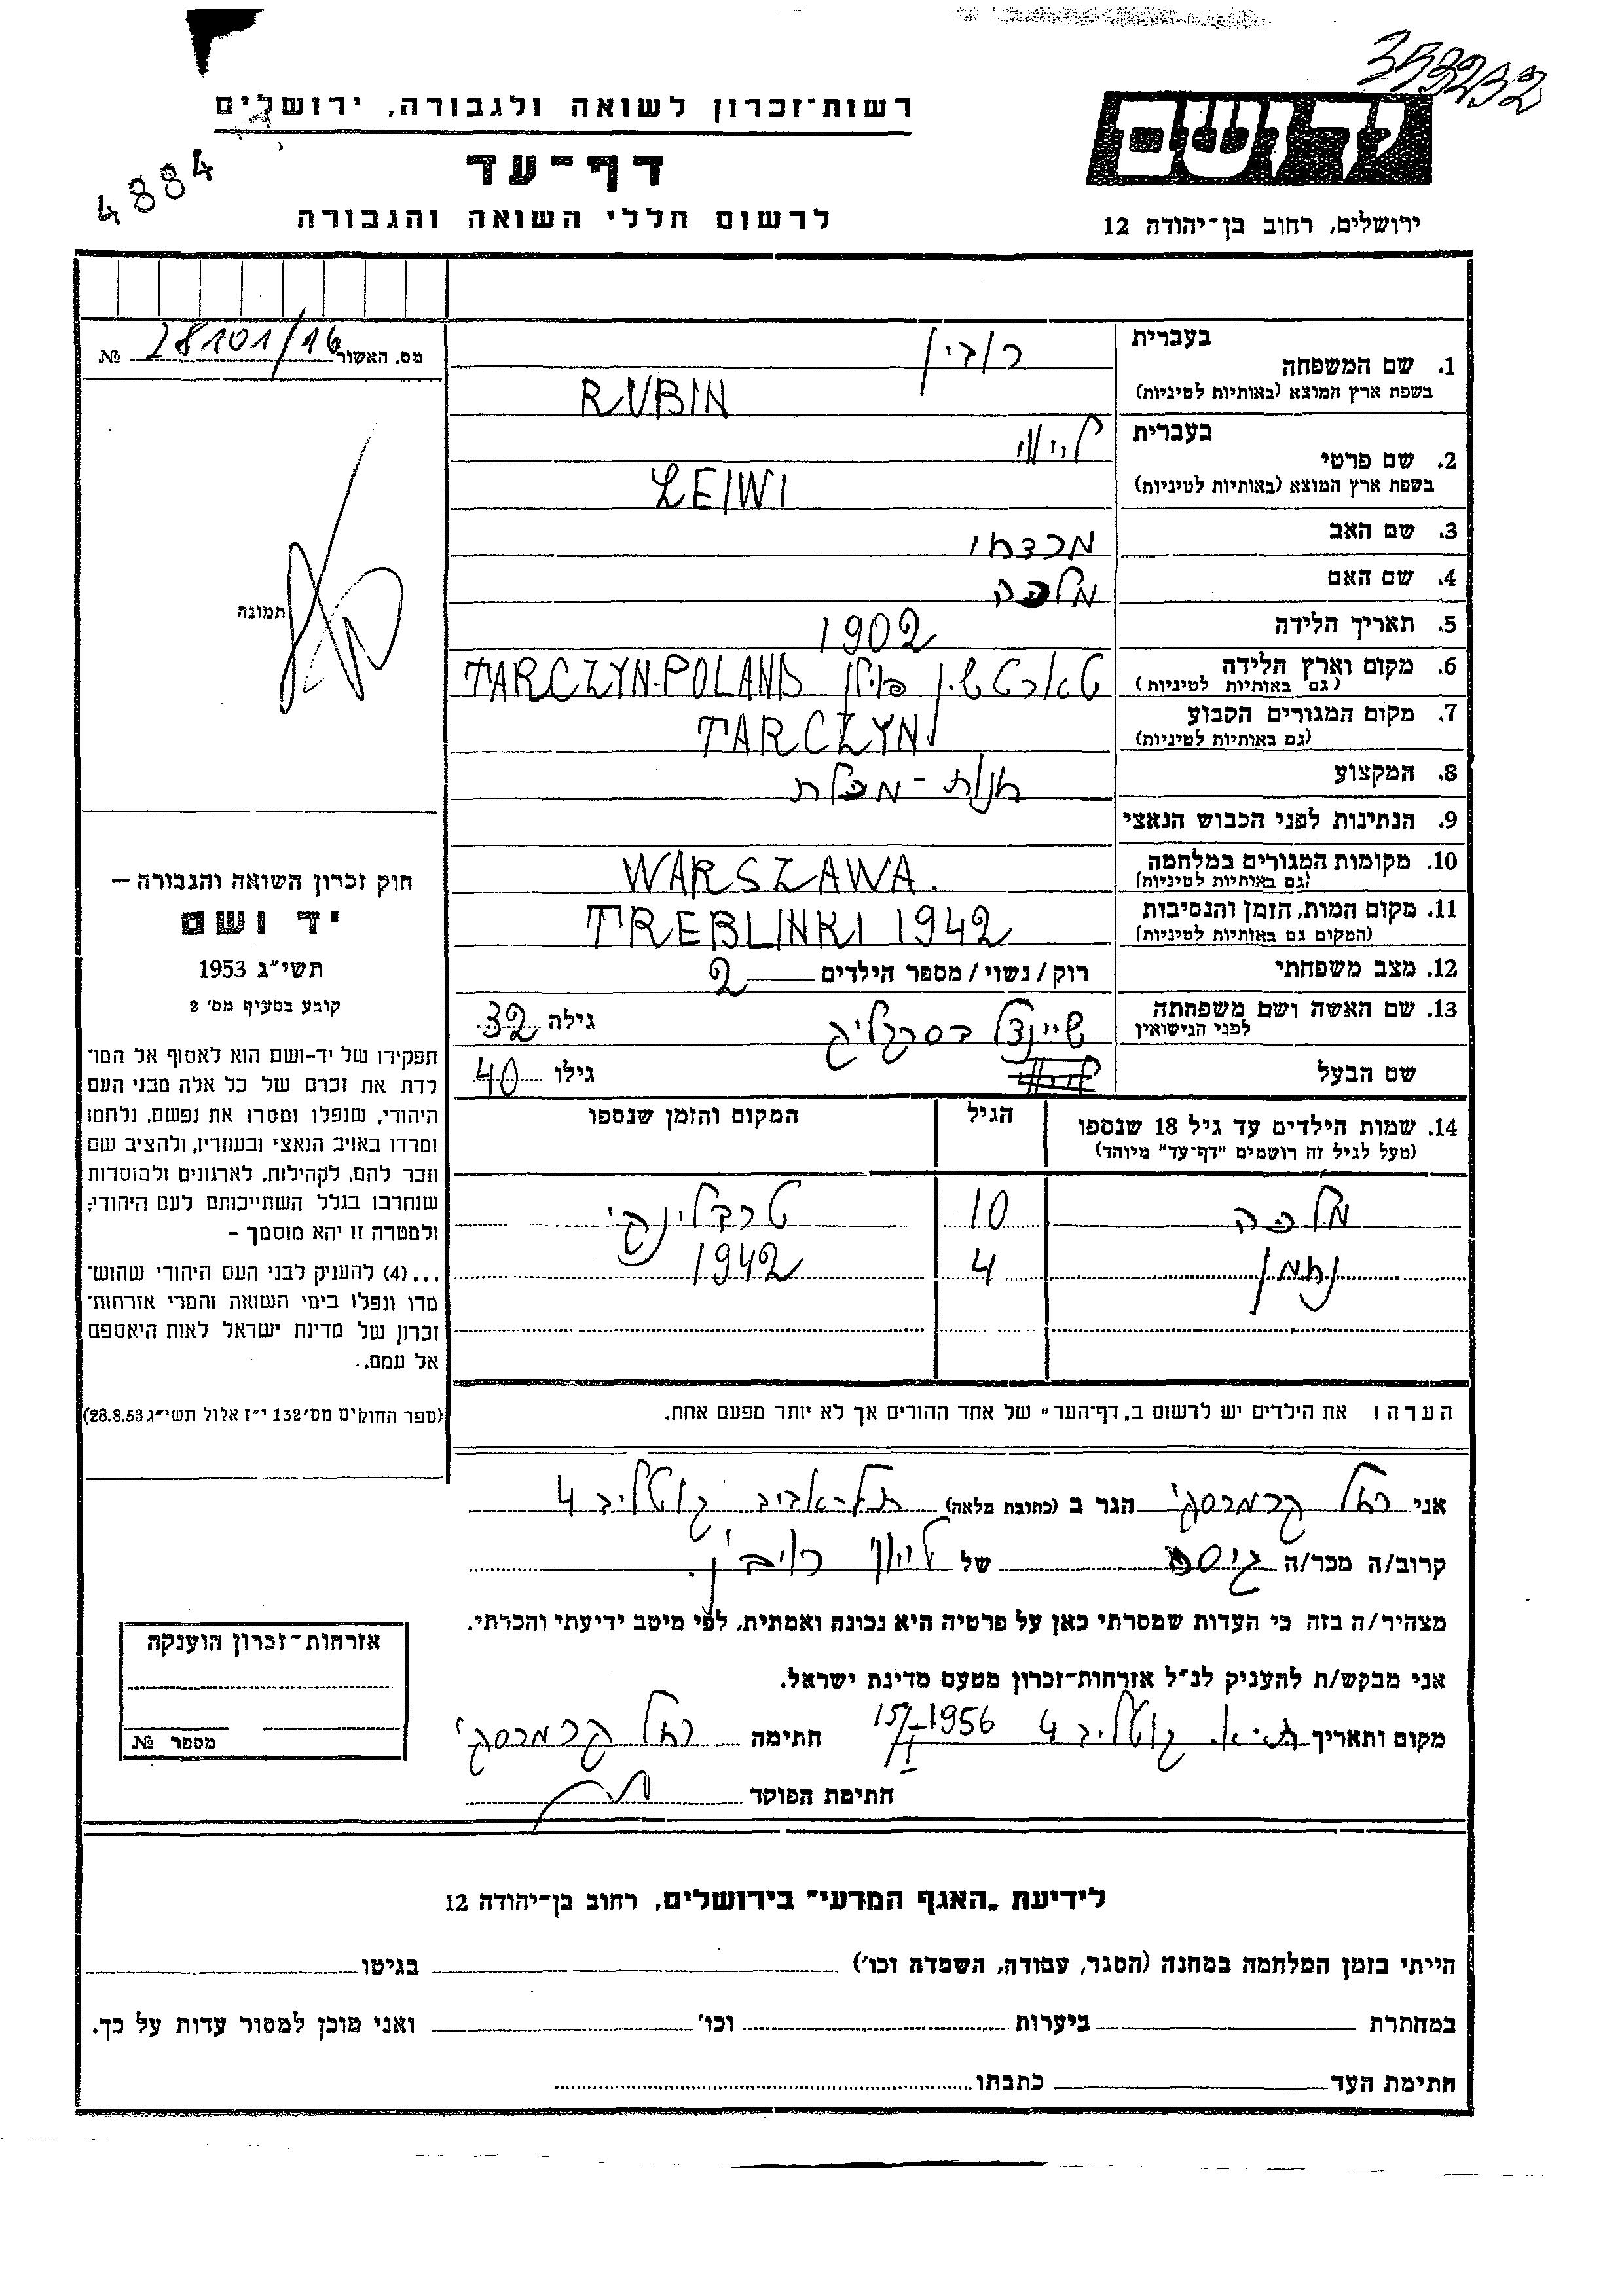 353232
רשות־זכרון לשואה ולגבורה, ירושלים
דף־עד
לרשום חללי השואה והגבורה
4884
יד ושם
ירושלים, רחוב בן־יהודה 12
מס. האשור 28101/16 №
תמונה
חוק זכרון השואה והגבורה —
יד ושם
תשי״ג 1953
קובע בסעיף מס׳ 2
תפקידו של יד-ושם הוא לאסוף אל המו־
לדת את זכרם של כל אלה מבני העם
היהודי, שנפלו ומסרו את נפשם, נלחמו
ומרדו באויב הנאצי ובעוזריו, ולהציב שם
וזכר להם, לקהילות, לארגונים ולמוסדות
שנחרבו בגלל השתייכותם לעם היהודי;
ולמטרה זו יהא מוסמך -
...(4) להעניק לבני העם היהודי שהוש־
מדו ונפלו בימי השואה והמרי אזרחות־
זכרון של מדינת ישראל לאות היאספם
אל עמם.
(ספר החוקים מס׳ 132 י״ז אלול תשי״ג 28.8.53)
בעברית רובין
1. שם המשפחה
בשפת ארץ המוצא (באותיות לטיניות) RUBIN
בעברית
2. שם פרטי
בשפת ארץ המוצא (באותיות לטיניות) LEIWI
3. שם האב מרדכי
4. שם האם מלכה
5. תאריך הלידה 1902
6. מקום וארץ הלידה טארטשין פולין TARCZYN-POLAND
(גם באותיות לטיניות)
7. מקום המגורים הקבוע TARCZYN
(גם באותיות לטיניות)
8. המקצוע חנות-מכלת
9. הנתינות לפני הכבוש הנאצי
10. מקומות המגורים במלחמה WARSZAWA.
(גם באותיות לטיניות)
11. מקום המות, הזמן והנסיבות TREBLINKI 1942
(המקום גם באותיות לטיניות)
12. מצב משפחתי רוק/נשוי/מספר הילדים 2
13. שם האשה ושם משפחתה שיינדל גילה 32
לפני הנישואין
שם הבעל גילו 40
14. שמות הילדים עד גיל 18 שנספו הגיל המקום והזמן שנספו
(מעל לגיל זה רושמים "דף־עד" מיוחד)
מלכה 10 טרבלינקי
נחמן 4 1942
הערה: את הילדים יש לרשום ב„דף־העד״ של אחד ההורים אך לא יותר מפעם אחת.
אני רחל קרמרסקי הגר ב (כתובת מלאה) תל-אביב גוטליב 4
קרוב/ה מכר/ה גיסה של רובין.
מצהיר/ה בזה כי העדות שמסרתי כאן על פרטיה היא נכונה ואמתית, לפי מיטב ידיעתי והכרתי.
אני מבקש/ת להעניק לנ״ל אזרחות־זכרון מטעם מדינת ישראל.
מקום ותאריך ת-א. גוטליב 4 15/I-1956 חתימה רחל קרמרסקי
חתימת הפוקד
אזרחות־זכרון הוענקה
מספר №
לידיעת „האגף המדעי״ בירושלים, רחוב בן־יהודה 12
הייתי בזמן המלחמה במחנה (הסגר, עבודה, השמדה וכו׳) בגיטו
במחתרת ביערות וכו׳ ואני מוכן למסור עדות על כך.
חתימת העד כתבתו